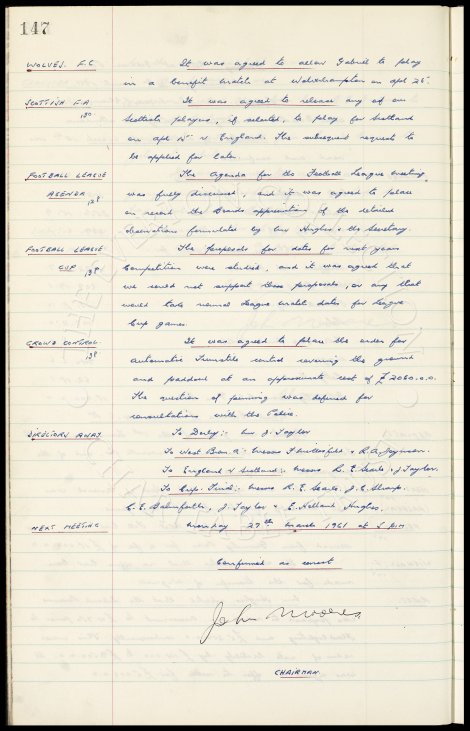 147
WOLVES. F.C. It was agreed to allow Gabriel to play
in a Benefit match at Wolverhampton on Apl 25
SCOTTISH F.A. It was agreed to release any of our
130 Scottish players, if selected, to play for Scotland
on Apl v England. The subsequent request to
be applied for later.
FOOTBALL LEAGUE The Agenda for the Football League meeting
AGENDA was fully discussed, and it was agreed to place
128 on record the Boards appreciation of the detailed
observations formulated by Mr Hughes & the Secretary.
FOOTBALL LEAGUE The proposals for dates for next years
CUP 138 Competition were studied, and it was agreed that
we could not support these proposals, or any that
would take normal League match dates for League
Cup games.
CROWD CONTROL It was agreed to place the order for
138 automatic Turnstile control covering the ground
and paddock at an approximate cost of £2060.0.0.
The question of penning was deferred for
consultations with the Police.
DIRECTORS AWAY To Derby:- Mr J. Taylor
To West Brom A:- Messrs F. Micklesfield & R.A.
To England v Scotland:- Messrs R. E. Searle, & J. Taylor.
To Cup Final:- Messrs R. E. Searle, J. C. Sharp.
C. E. Balmforth, J. Taylor & E. Holland Hughes.
NEXT MEETING Monday 27th March 1961 at 5 p.m
Confirmed as correct
John Moores
CHAIRMAN